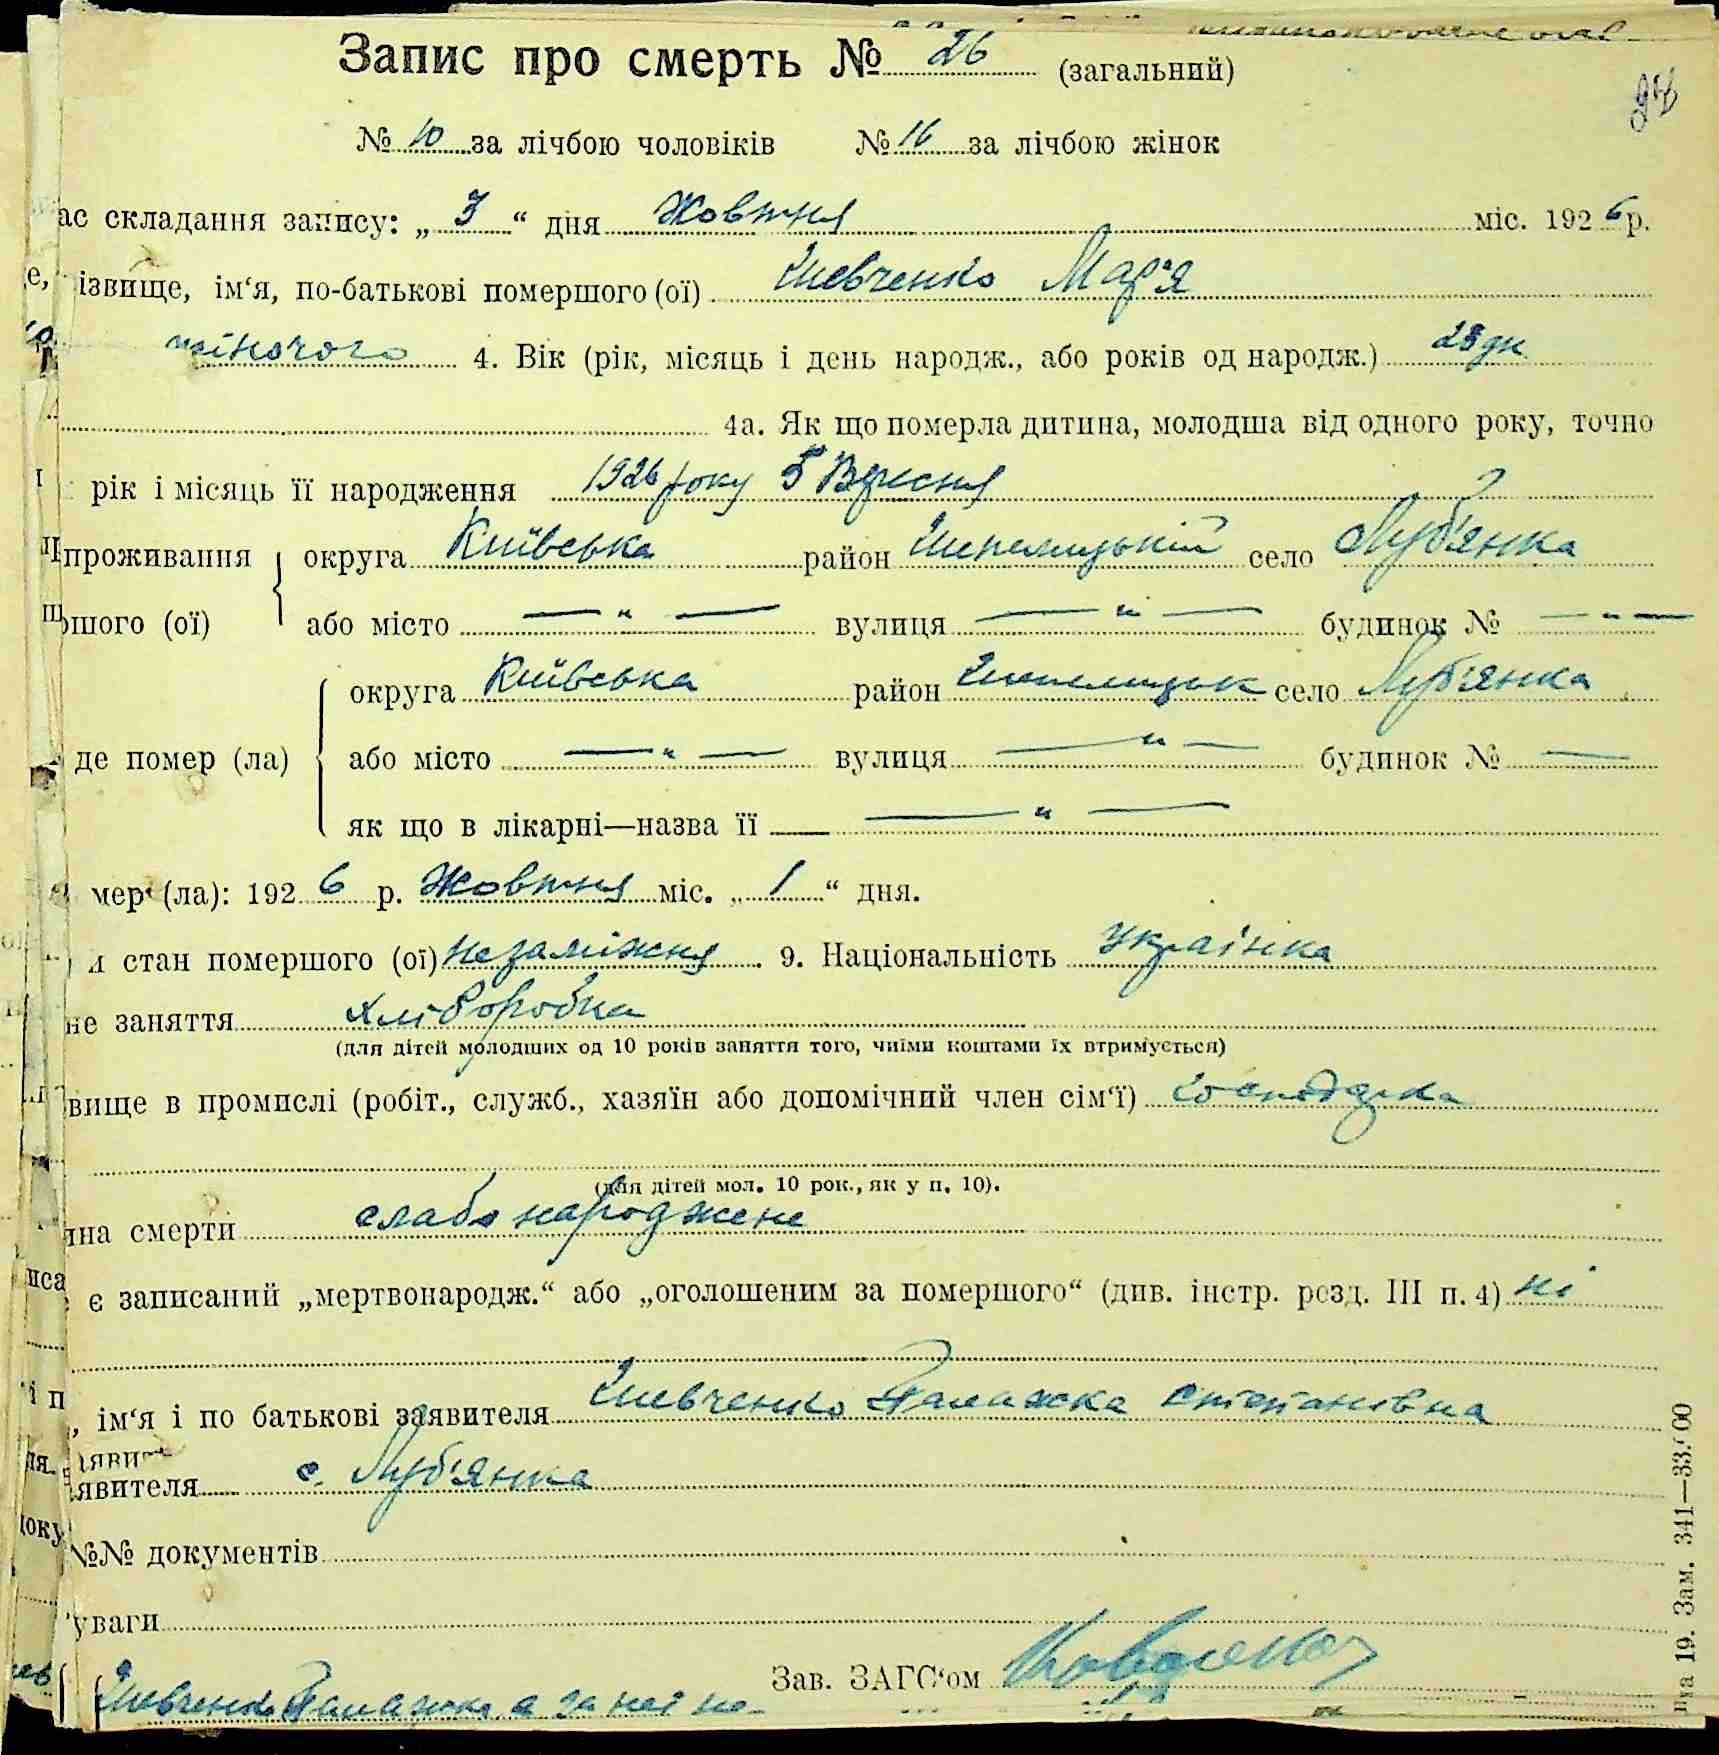 Запис про смерть № 26 (загальний)
№ 10 за лічбою чоловіків № 16 за лічбою жінок
ас складання запису: „ 3 “ дня Жовтня міс. 1926 р.
ізвище, ім‘я, по-батькові помершого (ої) Шевченко Мар'я
жіночого 4. Вік (рік, місяць і день народж., або років од народж.) 28 дн
4а. Як що померла дитина, молодша від одного року, точно
рік і місяць її народження 1926 року 5 Вересня
проживання округа Київська район Шепелицькій село Луб'янка
ршого (ої) або місто — „ — вулиця — „ — будинок № — „ —
округа Київська район Шепелицьк село Луб'янка
де помер (ла) або місто — „ — вулиця — „ — будинок № —
як що в лікарні—назва її — „ —
мер (ла): 1926 р. Жовтня міс. „ 1 “ дня.
й стан помершого (ої) незаміжня . 9. Національність Українка
не заняття хліборобка
(для дітей молодших од 10 років заняття того, чиїми коштами їх втримується)
вище в промислі (робіт., служб., хазяїн або допомічний член сім‘ї)
(для дітей мол. 10 рок., як у п. 10).
ина смерти слабо народжене
є записаний „мертвонародж.“ або „оголошеним за помершого“ (див. інстр. розд. III п. 4) ні
, ім‘я і по батькові заявителя Шевченко Палажка Степановна
явителя с. Луб'янка
№№ документів
уваги
Зав. ЗАГС‘ом
Шевченко Палажка а за неї не-